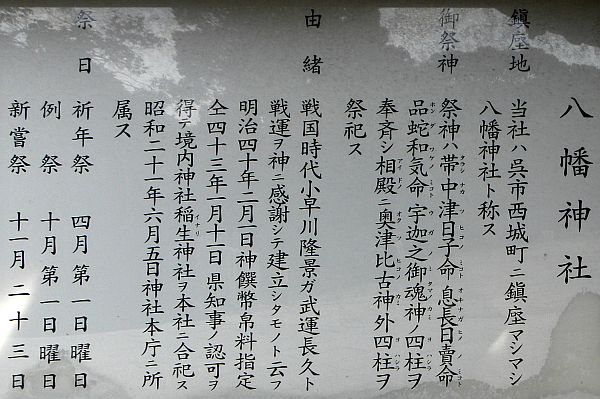 八幡神社
鎮座地
当社ハ呉市西城町ニ鎮座マシマシ
八幡神社ト称ス
御祭神
祭神ハ帯中津日子命 息長日賣命
品蛇和気命 宇迦之御魂神ノ四柱ヲ
奉斉シ相殿ニ奥津比古神外四柱ヲ
祭祀ス
由緒
戦国時代小早川隆景ガ武運長久ト
戦運ヲ神ニ感謝シテ建立シタモノト云フ
明治四十年二月一日神饌幣帛料指定
仝四十三年一月十一日 県知事ノ認可ヲ
得テ境内神社稲生神社ヲ本社ニ合祀ス
昭和二十一年六月五日神社本庁ニ所
属ス
祭日
祈年祭 四月第一日曜日
例祭 十月第一日曜日
新嘗祭 十一月二十三日